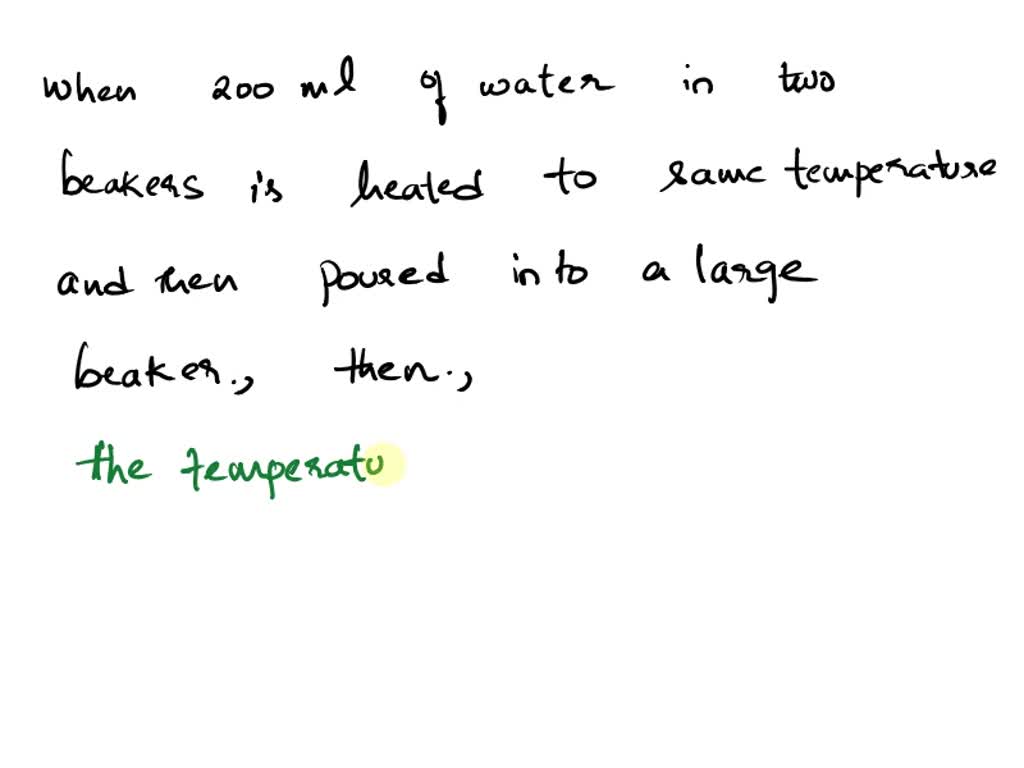 when 200 ml of water in two
beakers is heated to same temperature
and then poured into a large
beaker., then.,
the temperatu